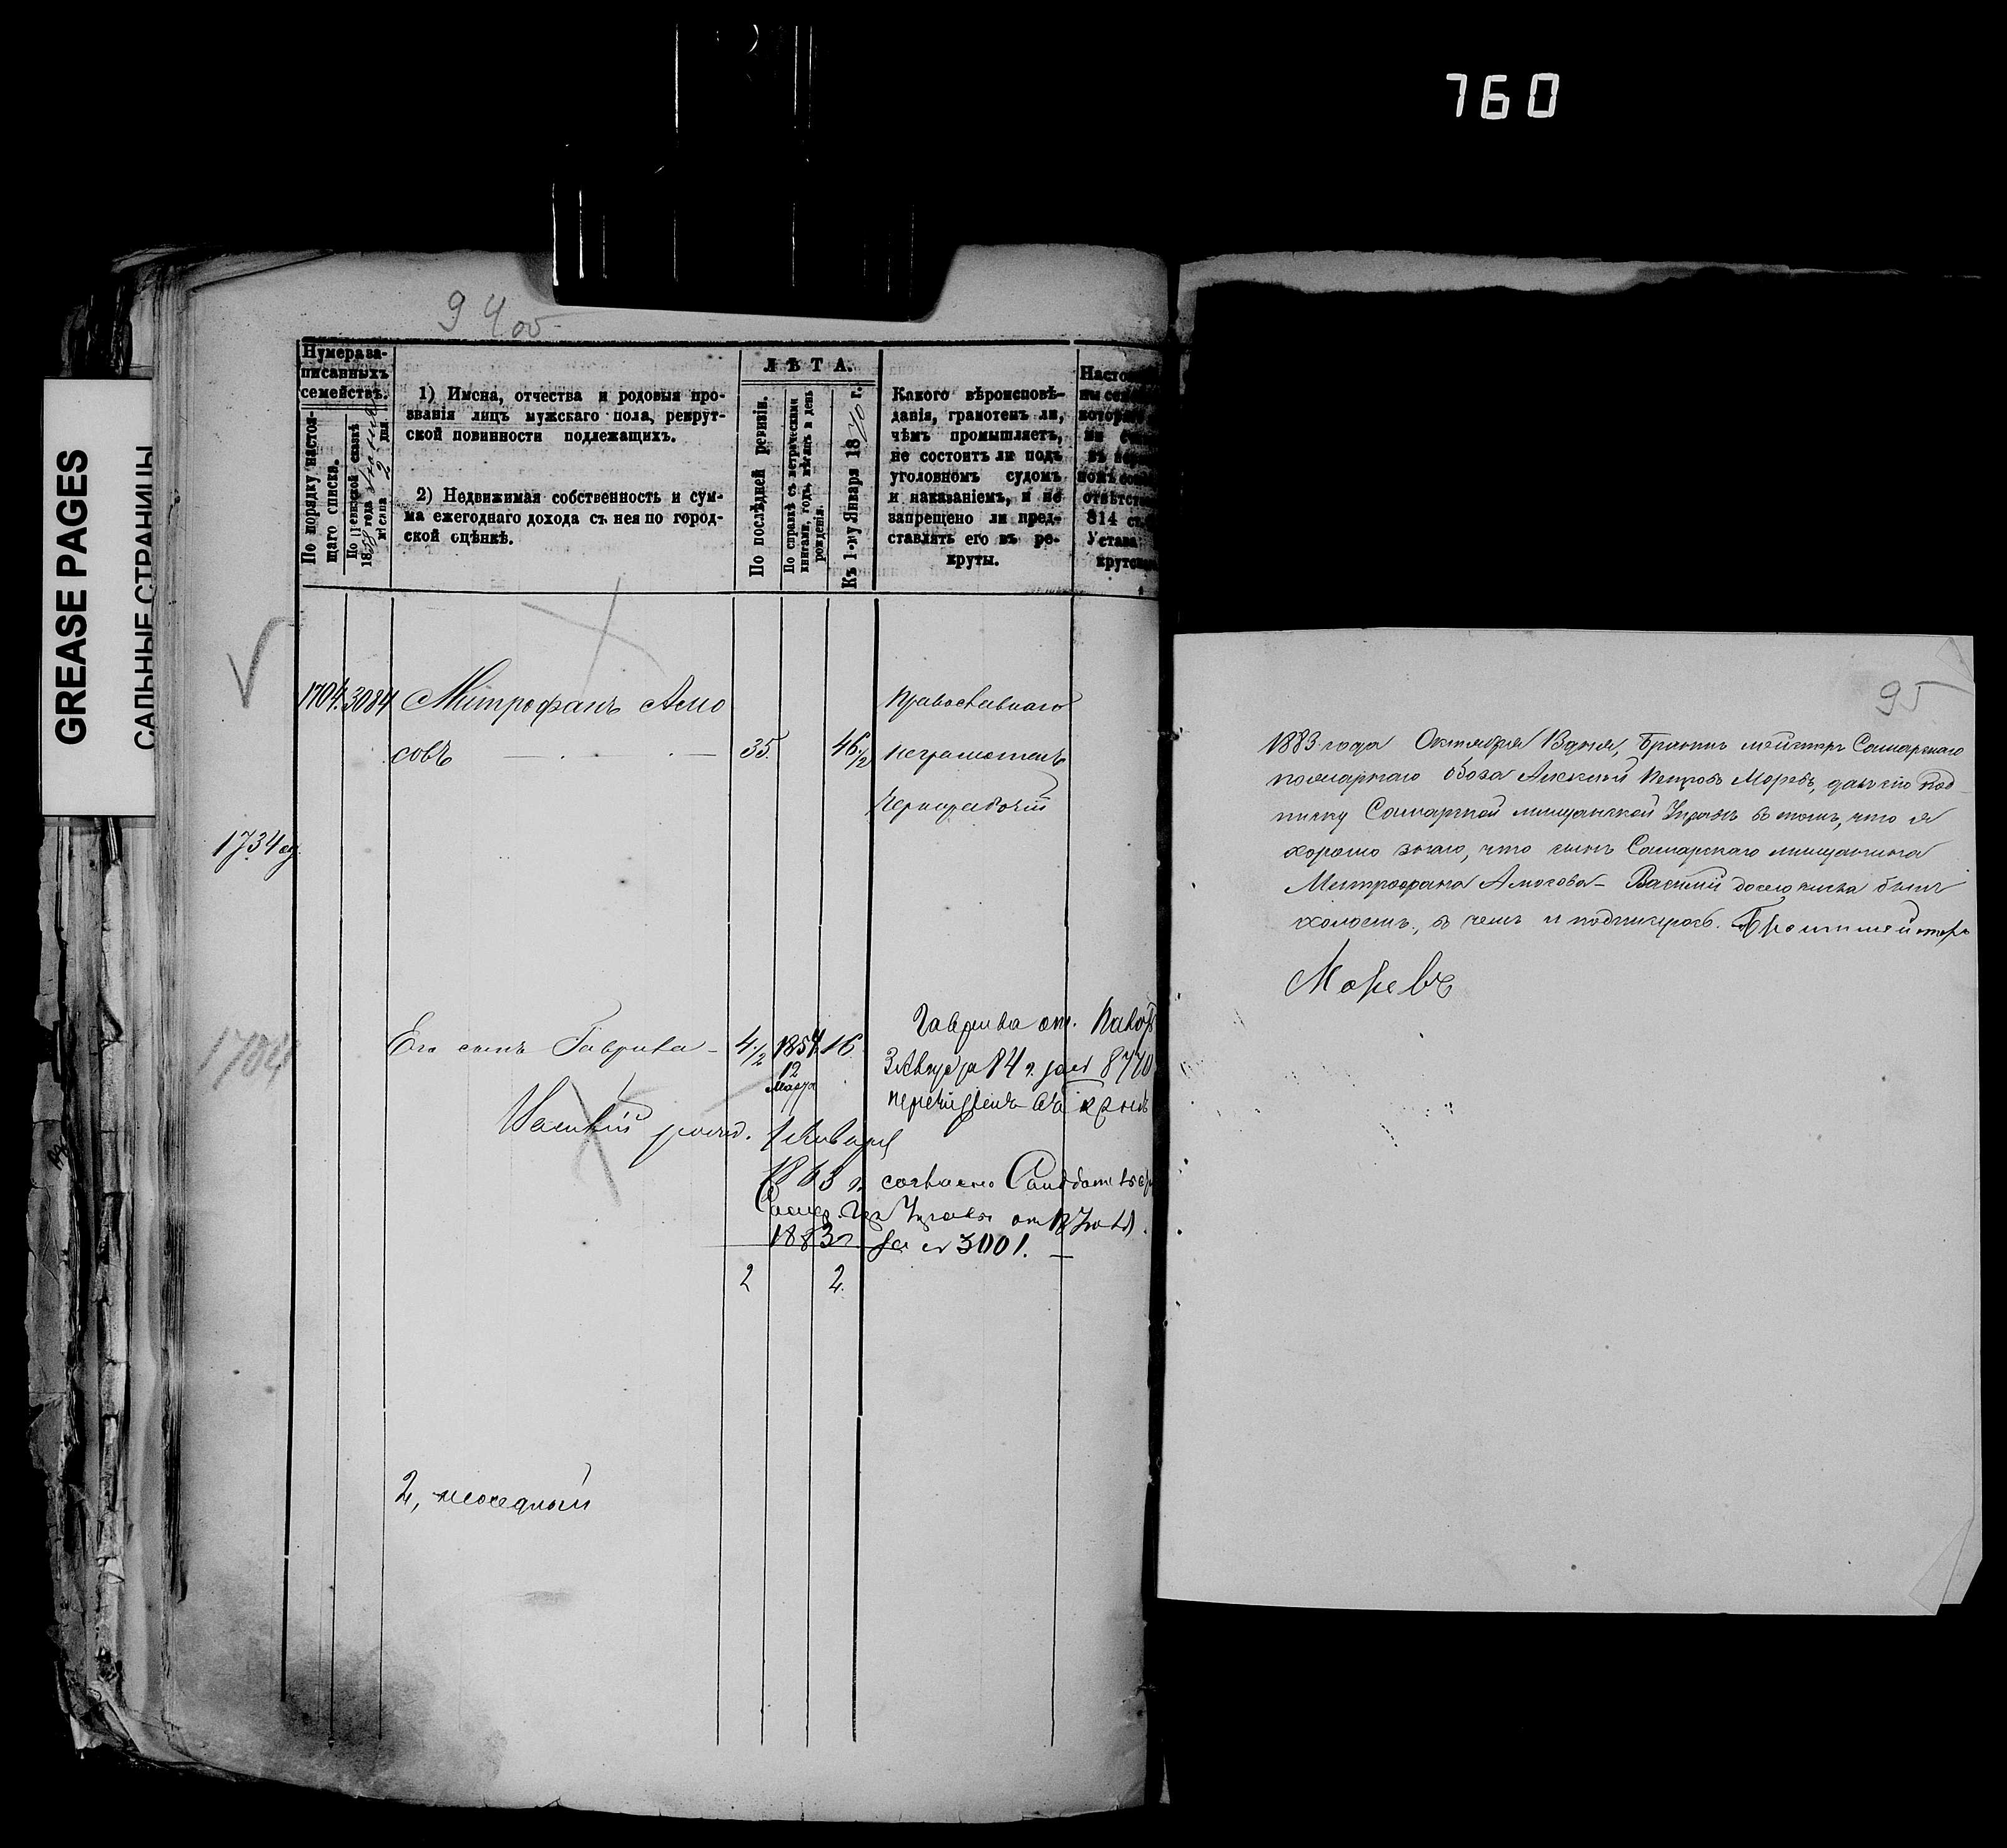 760
GREASE PAGES
САЛЬНЫЕ СТРАНИЦЫ
94 об
Нумера за-
писанныхъ
семействъ.
По порядку настоя-
щаго списка.
По ревизской сказкѣ
1858 года
мѣсяца 2 дня.
1) Имена, отчества и родовыя про-
званія лицъ мужскаго пола, рекрут-
ской повинности подлежащихъ.
2) Недвижимая собственность и сум-
ма ежегоднаго дохода съ нея по город-
ской оцѣнкѣ.
ЛѢТА.
По послѣдней ревизіи.
По справкѣ съ метрическими
книгами, годъ, мѣсяцъ и день
рожденія.
Къ 1-му Января 1870 г.
Какого вѣроисповѣ-
данія, грамотенъ ли,
чѣмъ промышляетъ,
не состоитъ ли подъ
уголовномъ судомъ
и наказаніемъ, и не
запрещено ли пред-
ставлять его въ ре-
круты.
814
Устава
1704. 3084 Митрофанъ Амо
совъ 35. 46 1/2
Православнаго
неграмотенъ
Чернорабочій
1734
1704
Его сынъ Гаврила 4 1/2 1854 16.
12
Марта
Гаврила от.
84 г. за № 8770
перечисленъ
Василій рожд. Января
1863 г. согласно
Управы от
1883 г. за № 3001.
2 2.
95
1883 года Октября 13 дня, Брантъ мейстръ Самарскаго
пожарнаго обоза Алексѣй Петровъ Моревъ, далъ сію под-
писку Самарской мещанской Управѣ въ томъ, что я
хорошо знаю, что сынъ Самарскаго мещанина
Митрофана Амосова - Василій до сего числа былъ
холостъ, въ чемъ и подписуюсь. Брантмейстръ
Моревъ